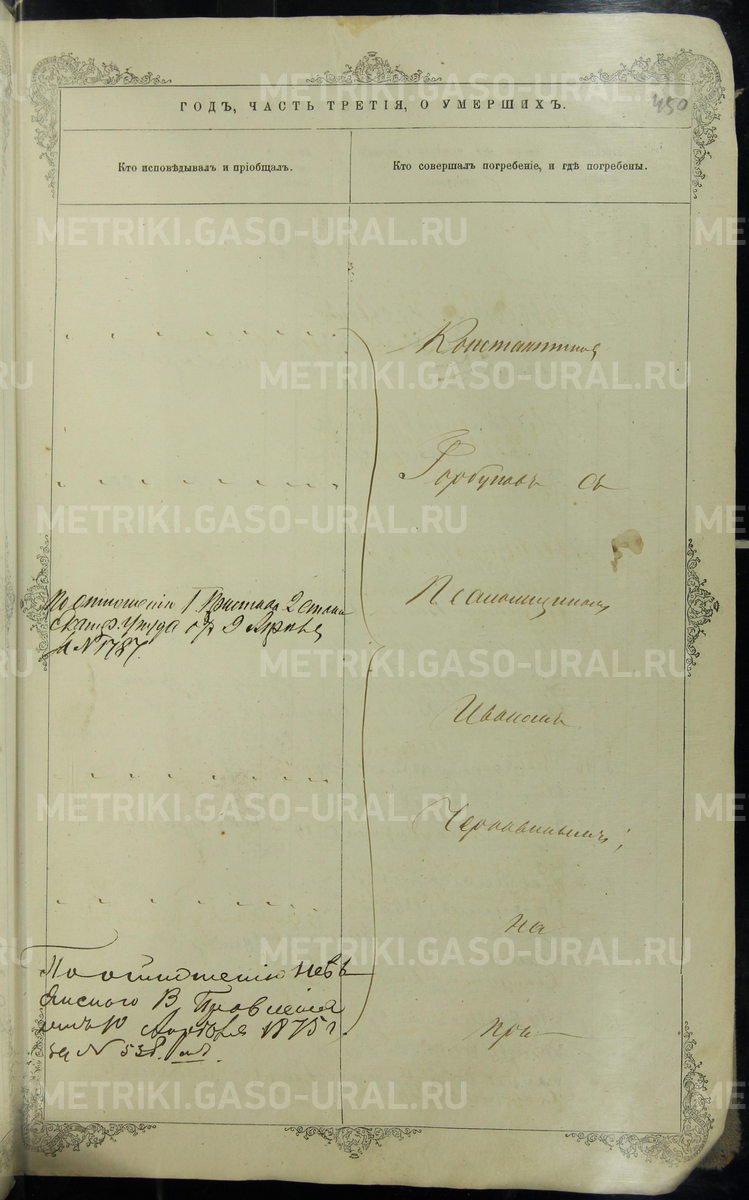 ГОДЪ, ЧАСТЬ ТРЕТІЯ, О УМЕРШИХЪ.
450
Кто исповѣдывалъ и пріобщалъ.
Кто совершалъ погребеніе, и гдѣ погребены.
METRIKI.GASO-URAL.RU
Константинъ
Горбуновъ съ
По отношенію Г. Пристава 2 стана
Екатер. уѣзда отъ 9 Апрѣля
за № 1787.
Псаломщикомъ
Иваномъ
Чернавинымъ;
на
По отношенію Невь
янскаго В Правленія
отъ 10 1875 г
за № 538.
при